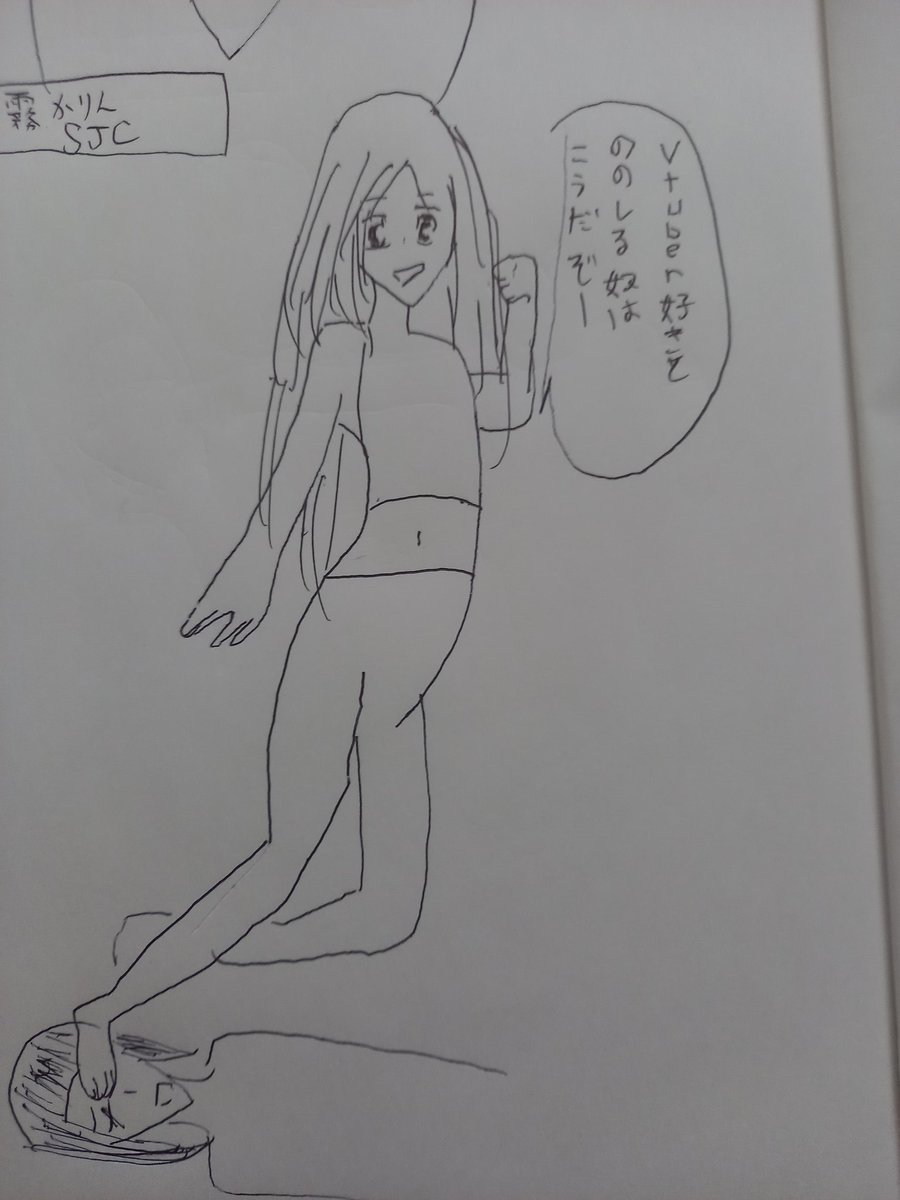 霧かりん
SJC
Vtuber好きを
ののしる奴は
こうだぞー